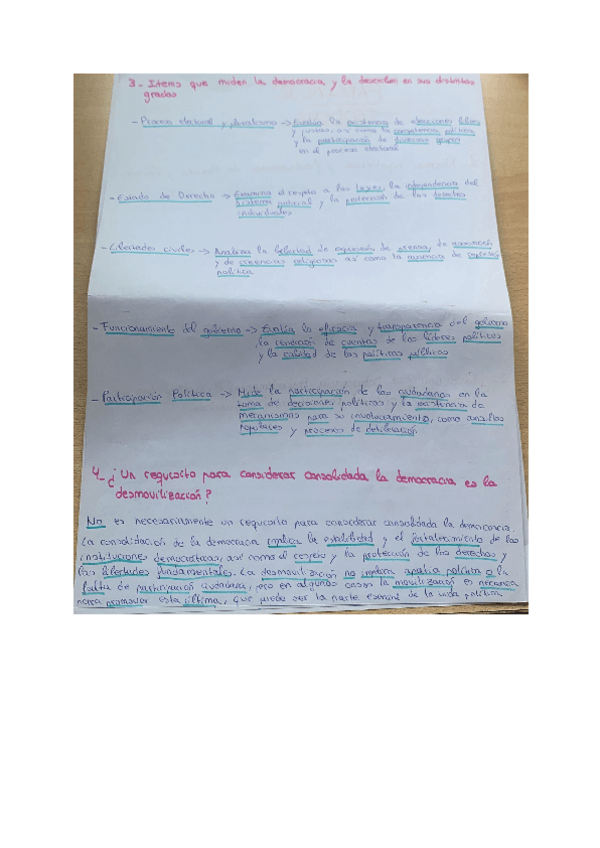 3- Items que miden la democracia y la describen en sus distintos
grados
- Proceso electoral y pluralismo -> Evalúa la existencia de elecciones libres
y justas, así como la competencia política
y la participación de diversos grupos
en el proceso electoral
- Estado de Derecho -> Examina el respeto a las leyes, la independencia del
sistema judicial y la protección de los derechos
individuales
- Libertades civiles -> Analiza la libertad de expresión, de prensa, de asociación
y de creencias religiosas así como la ausencia de represión
política
- Funcionamiento del gobierno -> Evalúa la eficacia y transparencia del gobierno
, la rendición de cuentas de los líderes políticos
y la calidad de las políticas públicas
- Participación Política -> Mide la participación de los ciudadanos en la
toma de decisiones políticas y la existencia de
mecanismos para su involucramiento, como consultas
populares y procesos de deliberación
4- ¿Un requisito para considerar consolidada la democracia es la
desmovilización?
No es necesariamente un requisito para considerar consolidada la democracia.
La consolidación de la democracia implica la estabilidad y el fortalecimiento de las
instituciones democráticas, así como el respeto y la protección de los derechos y
las libertades fundamentales. La desmovilización no implica apatía política o la
falta de participación ciudadana, pero en algunos casos la movilización es necesaria
para promover esta última, que puede ser la parte esencial de la vida política